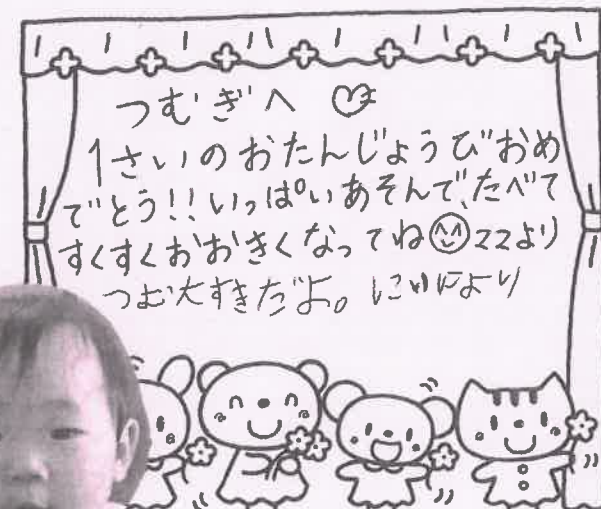 つむぎへ
1さいのおたんじょうびおめ
でとう!!いっぱいあそんで、たべて
すくすくおおきくなってね ママより
つむ大すきだよ。にいにより